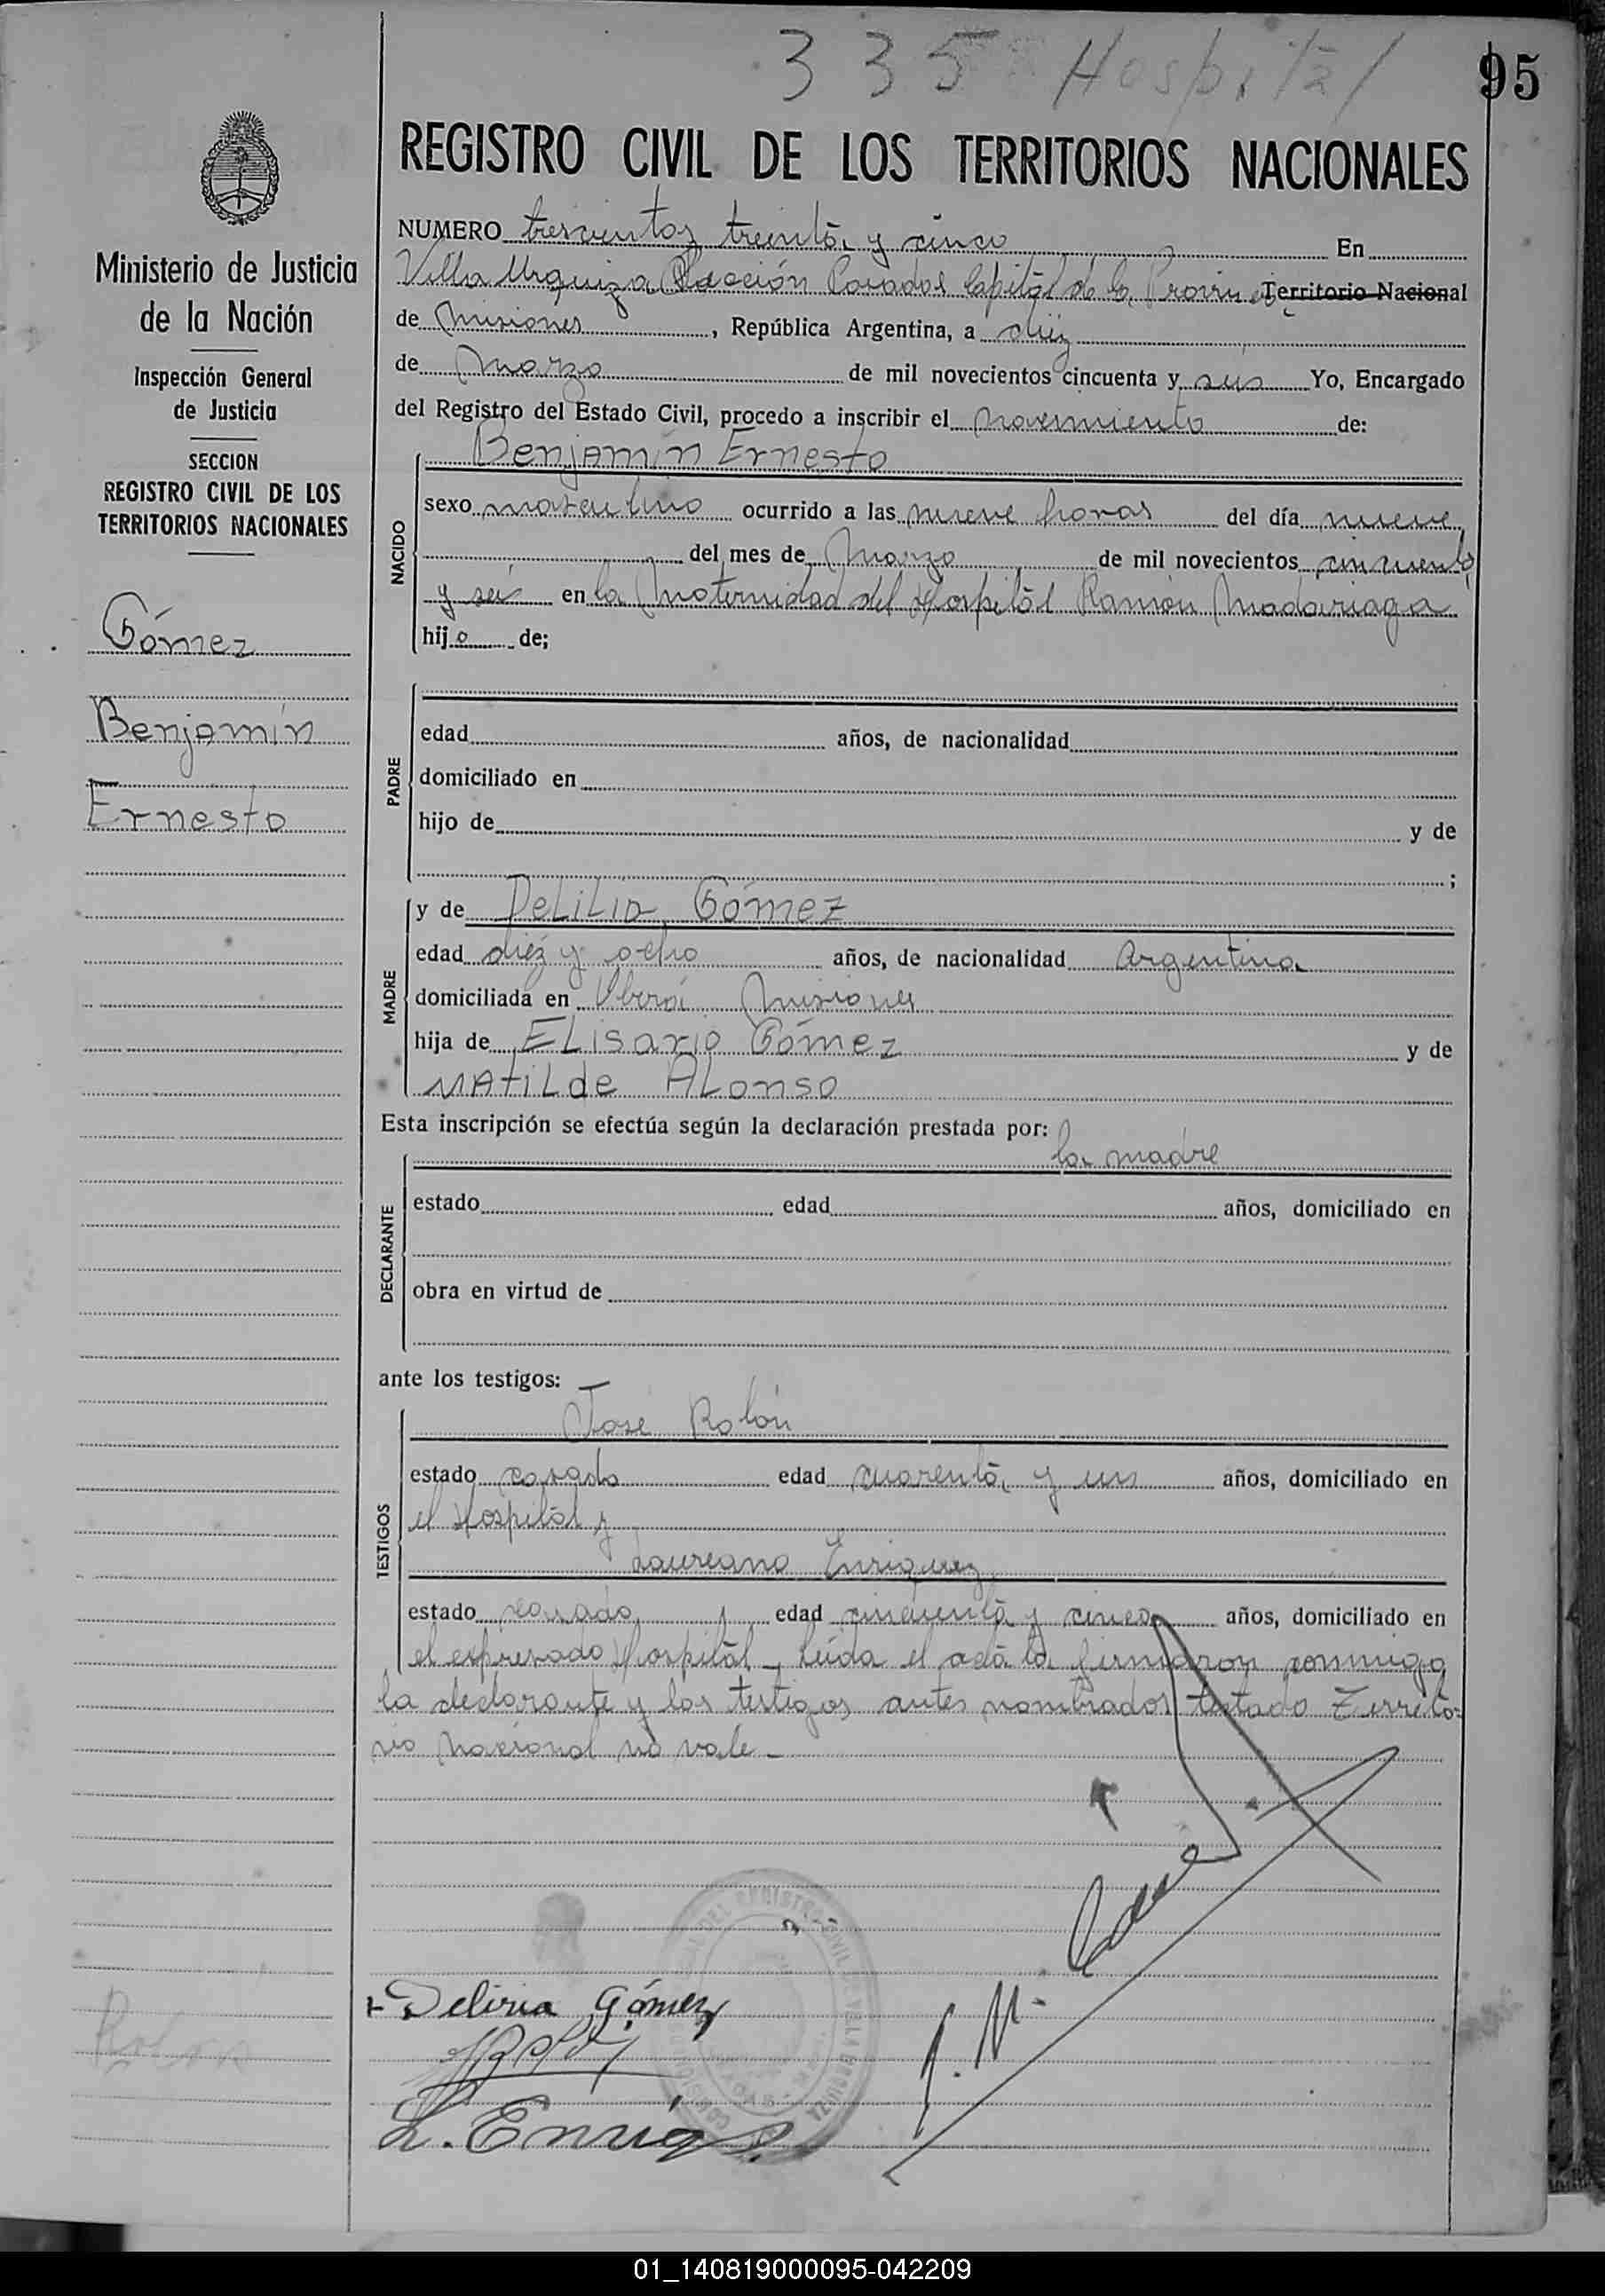 335 Hospital
95
REGISTRO CIVIL DE LOS TERRITORIOS NACIONALES
Ministerio de Justicia
de la Nación
Inspección General
de Justicia
SECCION
REGISTRO CIVIL DE LOS
TERRITORIOS NACIONALES
Gómez
Benjamín
Ernesto
NUMERO trescientos treinta y cinco En
Villa Urquiza Sección Posadas Capital de la Provincia Territorio Nacional
de Misiones, República Argentina, a diez
de Marzo de mil novecientos cincuenta y seis Yo, Encargado
del Registro del Estado Civil, procedo a inscribir el nacimiento de:
NACIDO
Benjamín Ernesto
sexo masculino ocurrido a las nueve horas del día nueve
del mes de Marzo de mil novecientos cincuenta
y seis en la Maternidad del Hospital Ramón Madariaga
hijo de;
PADRE
edad años, de nacionalidad
domiciliado en
hijo de y de
;
MADRE
y de Delilia Gómez
edad diez y ocho años, de nacionalidad Argentina
domiciliada en Oberá Misiones
hija de Elisario Gómez y de
Matilde Alonso
Esta inscripción se efectúa según la declaración prestada por:
la madre
DECLARANTE
estado edad años, domiciliado en
obra en virtud de
ante los testigos:
TESTIGOS
José Rolón
estado casado edad cuarenta y un años, domiciliado en
el Hospital y
Laureano Enriquez
estado casado edad cincuenta y cinco años, domiciliado en
el expresado Hospital - Leída el acta la firmaron conmigo
la declarante y los testigos antes nombrados testado Territo-
rio Nacional no vale -
Deliria Gómez
L. Enriq
01_140819000095-042209